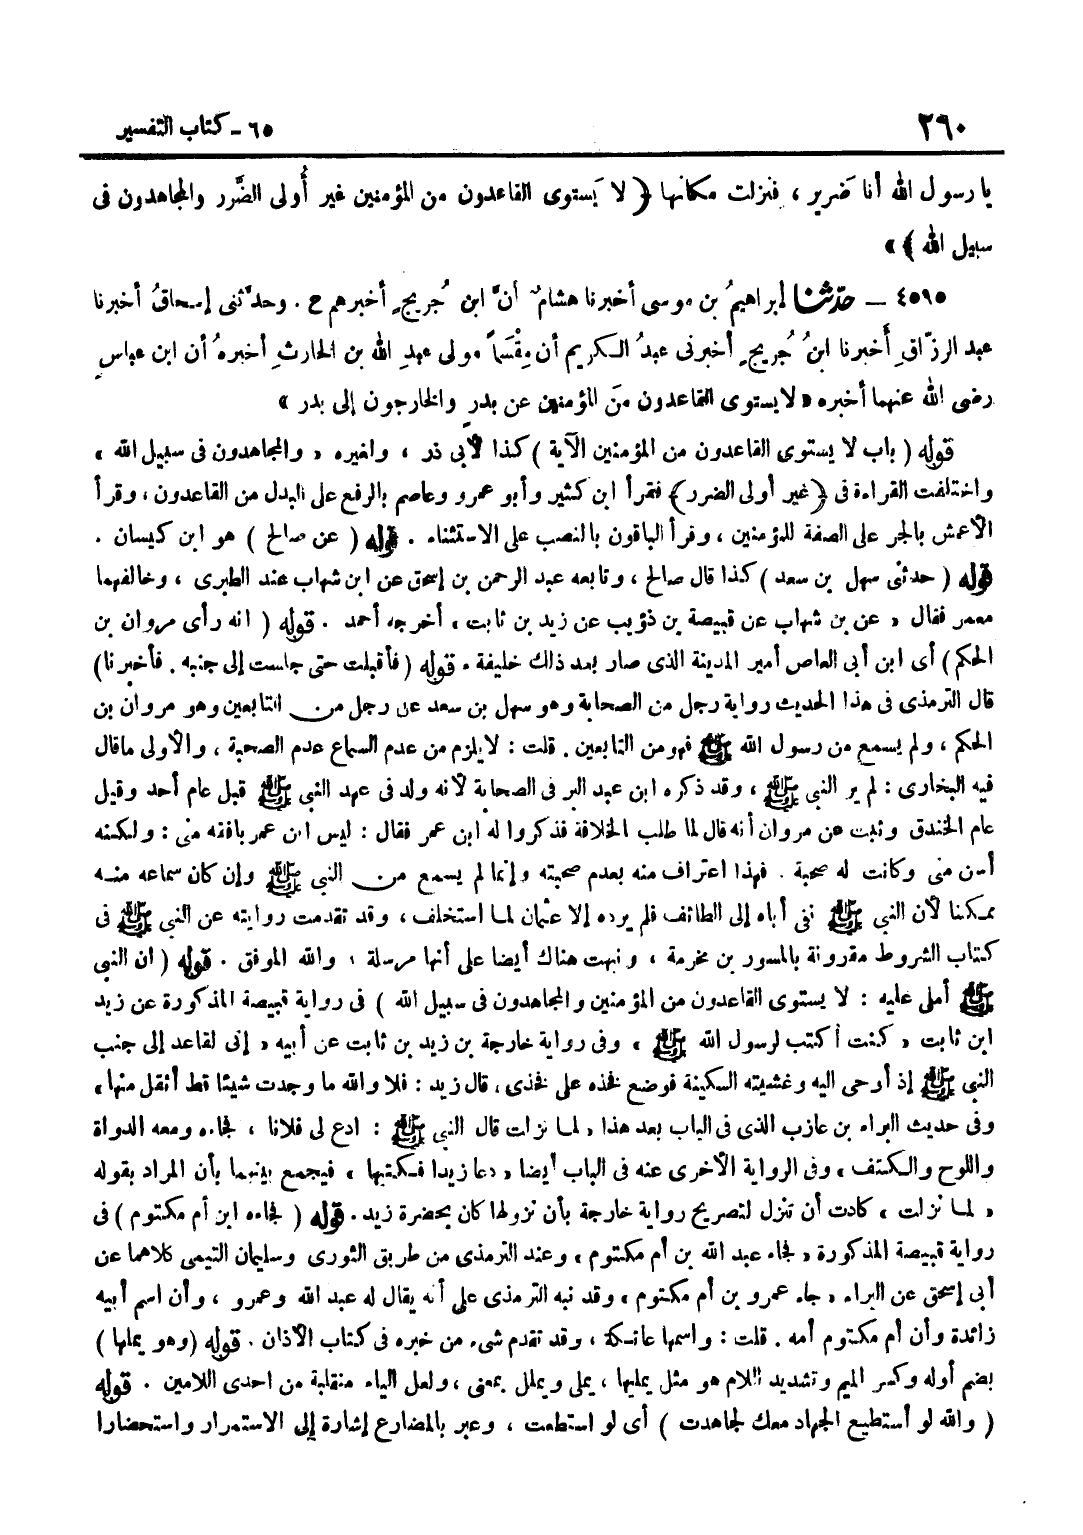 ٢٦٠
٦٥ - كتاب التفسير
يا رسول الله أنا ضرير ، فنزلت مكانها ﴿ لا يَستوى القاعدون من المؤمنين غير أُولى الضَّرر والمجاهدون فى
سبيل الله ﴾ »
٤٥٩٥ - حدّثنا إبراهيمُ بن موسى أخبرنا هشامٌ أنَّ ابن جُريجٍ أخبرهم ح . وحدَّثنى إسحاقُ أخبرنا
عبد الرزّاقِ أَخبرنا ابنُ جُريجٍ أخبرنى عبدُ الكريم أن مِقْسَماً مولى عبدِ الله بن الحارث أخبرهُ أن ابن عباسٍ
رضى الله عنهما أخبره « لا يستوى القاعدون منَ المؤمنين عن بدرٍ والخارجون إلى بدر »
قوله ( باب لا يستوى القاعدون من المؤمنين الآية ) كذا لأبى ذر ، ولغيره « والمجاهدون فى سبيل الله »
واختلفت القراءة فى ﴿ غير أولى الضرر ﴾ فقرأ ابن كثير وأبو عمرو وعاصم بالرفع على البدل من القاعدون ، وقرأ
الأعمش بالجر على الصفة للمؤمنين ، وقرأ الباقون بالنصب على الاستثناء . قوله ( عن صالح ) هو ابن كيسان .
قوله ( حدثنى سهل بن سعد ) كذا قال صالح ، وتابعه عبد الرحمن بن إسحق عن ابن شهاب عند الطبرى ، وخالفهما
معمر فقال « عن بن شهاب عن قبيصة بن ذؤيب عن زيد بن ثابت » أخرجه أحمد . قوله ( انه رأى مروان بن
الحكم ) أى ابن أبى العاص أمير المدينة الذى صار بعد ذلك خليفة . قوله ( فأقبلت حتى جلست إلى جنبه . فأخبرنا )
قال الترمذى فى هذا الحديث رواية رجل من الصحابة وهو سهل بن سعد عن رجل من التابعين وهو مروان بن
الحكم ، ولم يسمع من رسول الله ﷺ فهو من التابعين . قلت : لا يلزم من عدم السماع عدم الصحبة ، والأولى ما قال
فيه البخارى : لم ير النبي ﷺ ، وقد ذكره ابن عبد البر فى الصحابة لأنه ولد فى عهد النبي ﷺ قبل عام أحد وقيل
عام الخندق وثبت عن مروان أنه قال لما طلب الخلافة فذكروا له ابن عمر فقال : ليس ابن عمر بافقه منى : ولكنه
أسن منى وكانت له صحبة . فهذا اعتراف منه بعدم صحبته وإنما لم يسمع من النبي ﷺ وإن كان سماعه منه
ممكنا لأن النبي ﷺ نفى أباه إلى الطائف فلم يرده إلا عثمان لما استخلف ، وقد تقدمت روايته عن النبي ﷺ فى
كتاب الشروط مقرونة بالمسور بن مخرمة ، ونبهت هناك أيضا على أنها مرسلة ، والله الموفق . قوله ( ان النبي
ﷺ أملى عليه : لا يستوى القاعدون من المؤمنين والمجاهدون فى سبيل الله ) فى رواية قبيصة المذكورة عن زيد
ابن ثابت « كنت أكتب لرسول الله ﷺ » وفى رواية خارجة بن زيد بن ثابت عن أبيه « إنى لقاعد إلى جنب
النبي ﷺ إذ أوحى اليه وغشيته السكينة فوضع فخذه على فخذى ، قال زيد : فلا والله ما وجدت شيئا قط أثقل منها »
وفى حديث البراء بن عازب الذى فى الباب بعد هذا « لما نزلت قال النبي ﷺ : ادع لى فلانا ، فجاءه ومعه الدواة
واللوح والكتف » وفى الرواية الأخرى عنه فى الباب أيضا « دعا زيدا فكتبها » فيجمع بينهما بأن المراد بقوله
« لما نزلت » كادت أن تنزل لتصريح رواية خارجة بأن نزولها كان بحضرة زيد . قوله ( فجاءه ابن أم مكتوم ) فى
رواية قبيصة المذكورة « فجاء عبد الله بن أم مكتوم » وعند الترمذى من طريق الثورى وسليمان التيمى كلاهما عن
أبى إسحق عن البراء « جاء عمرو بن أم مكتوم » وقد نبه الترمذى على أنه يقال له عبد الله وعمرو ، وأن اسم أبيه
زائدة وأن أم مكتوم أمه . قلت : واسمها عاتكة ، وقد تقدم شىء من خبره فى كتاب الأذان . قوله ( وهو يملها )
بضم أوله وكسر الميم وتشديد اللام هو مثل يمليها ، يملى ويملل بمعنى ، ولعل الياء منقلبة من احدى اللامين . قوله
( والله لو أستطيع الجهاد معك لجاهدت ) أى لو استطعت ، وعبر بالمضارع إشارة إلى الاستمرار واستحضارا